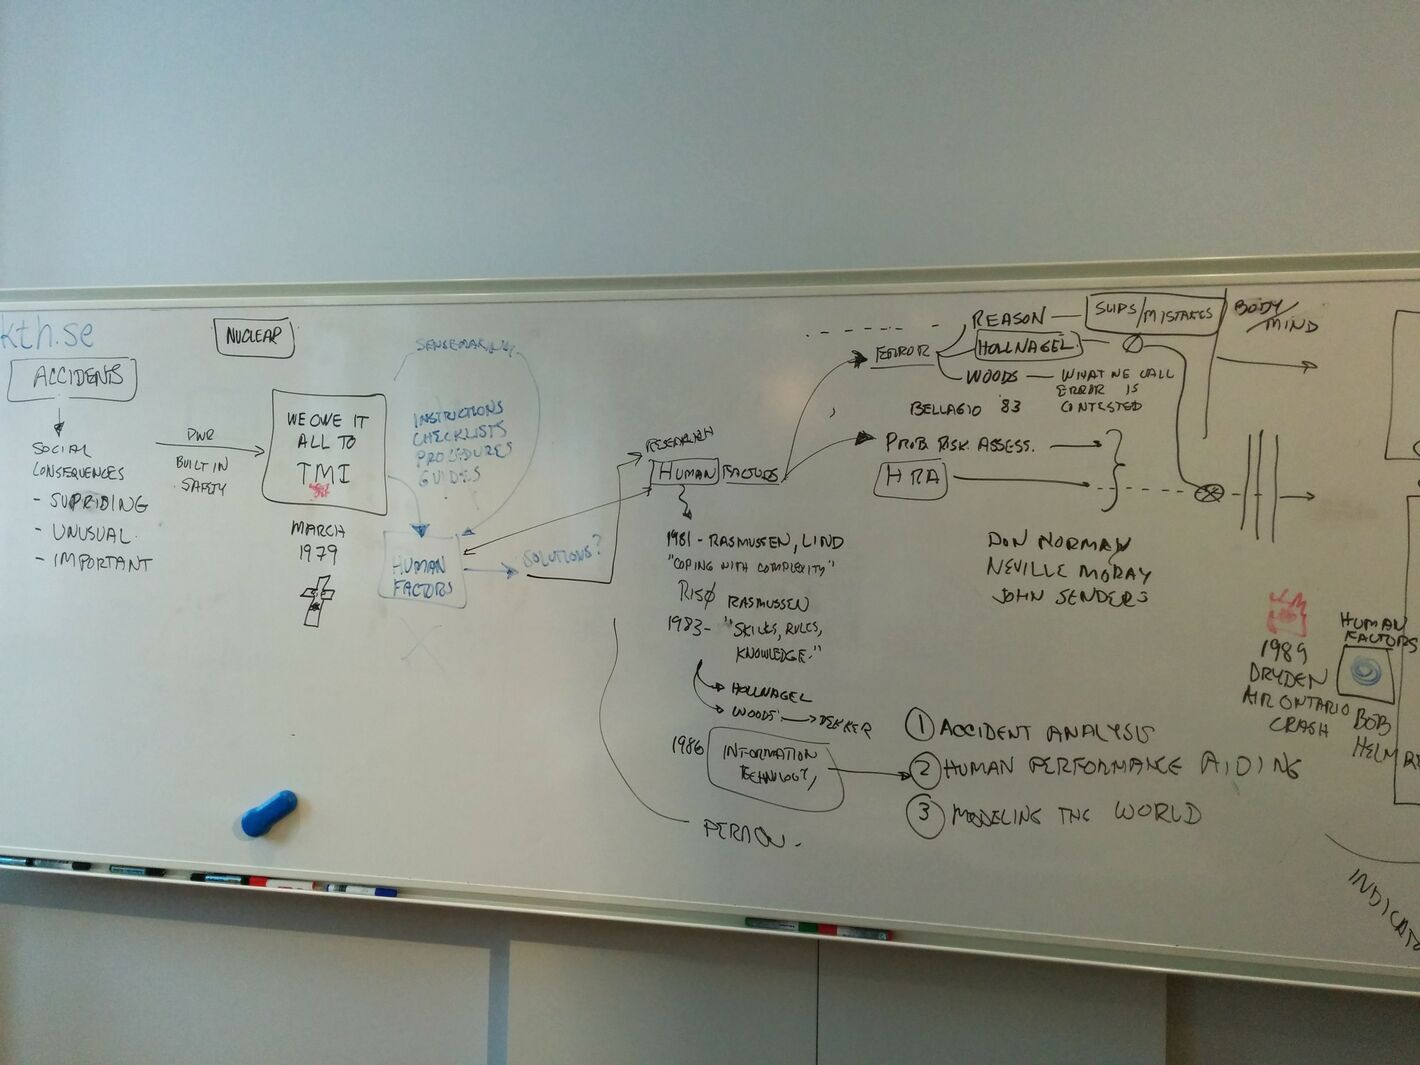 kth.se
ACCIDENTS
SOCIAL
CONSEQUENCES
- SUPRISING
- UNUSUAL
- IMPORTANT
PWR
BUILT IN
SAFETY
NUCLEAR
WE OWE IT
ALL TO
TMI
MARCH
1979
SENSEMAKING
INSTRUCTIONS
CHECKLISTS
PROCEDURES
GUIDES
HUMAN
FACTORS
SOLUTIONS?
RESEARCH
HUMAN FACTORS
1981 - RASMUSSEN, LIND
"COPING WITH COMPLEXITY"
RISØ RASMUSSEN
1983 - "SKILLS, RULES,
KNOWLEDGE."
HOLLNAGEL
WOODS → DEKKER
1986 INFORMATION
TECHNOLOGY,
PERROW.
ERROR
REASON — SLIPS/MISTAKES
HOLLNAGEL
WOODS — WHAT WE CALL
ERROR IS
CONTESTED
BELLAGIO 83
PROB. RISK ASSESS.
HRA
BODY/
MIND
DON NORMAN
NEVILLE MORAY
JOHN SENDERS
① ACCIDENT ANALYSIS
② HUMAN PERFORMANCE AIDING
③ MODELING THE WORLD
1989
DRYDEN
AIR ONTARIO
CRASH
HUMAN
FACTORS
BOB
HELM